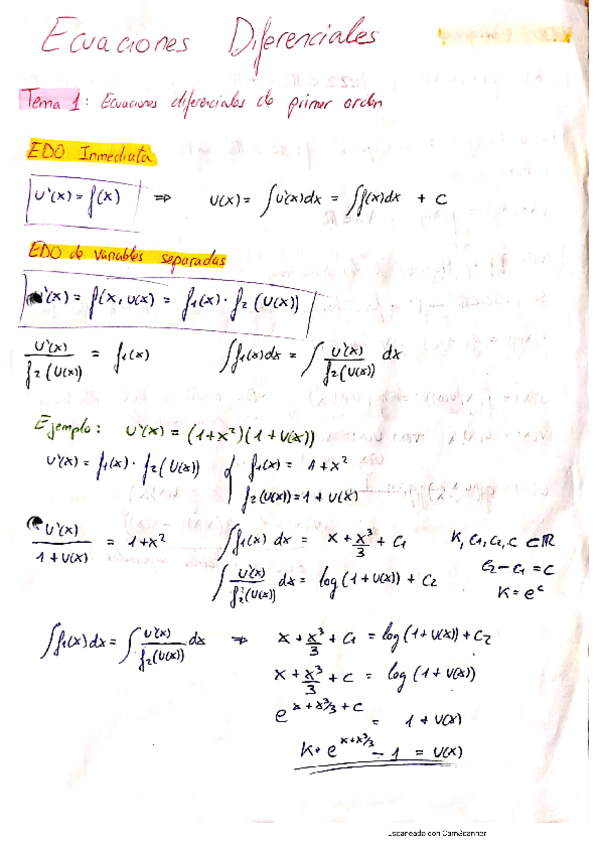 Ecuaciones Diferenciales
Tema 1: Ecuaciones diferenciales de primer orden
EDO Inmediata
U'(x) = f(x) ⇒ U(x) = ∫U'(x)dx = ∫f(x)dx + C
EDO de variables separadas
'(x) = f(x, U(x) = f₁(x) · f₂(U(x))
U'(x)/f₂(U(x)) = f₁(x) ∫f₁(x)dx = ∫ U'(x)/f₂(U(x)) dx
Ejemplo: U'(x) = (1+x²)(1+U(x))
U'(x) = f₁(x) · f₂(U(x)) { f₁(x) = 1+x²
f₂(U(x)) = 1 + U(x)
U'(x)/1+U(x) = 1+x² ∫f₁(x) dx = x + x³/3 + C₁ K, C₁, C₂, C ∈ ℝ
∫ U'(x)/f₂(U(x)) dx = log(1+U(x)) + C₂ C₂ - C₁ = C
K = eᶜ
∫f₁(x)dx = ∫ U'(x)/f₂(U(x)) dx ⇒ x + x³/3 + C₁ = log(1+U(x)) + C₂
x + x³/3 + C = log(1+U(x))
e^(x+x³/3+C) = 1 + U(x)
K · e^(x+x³/3) - 1 = U(x)
Escaneado con CamScanner